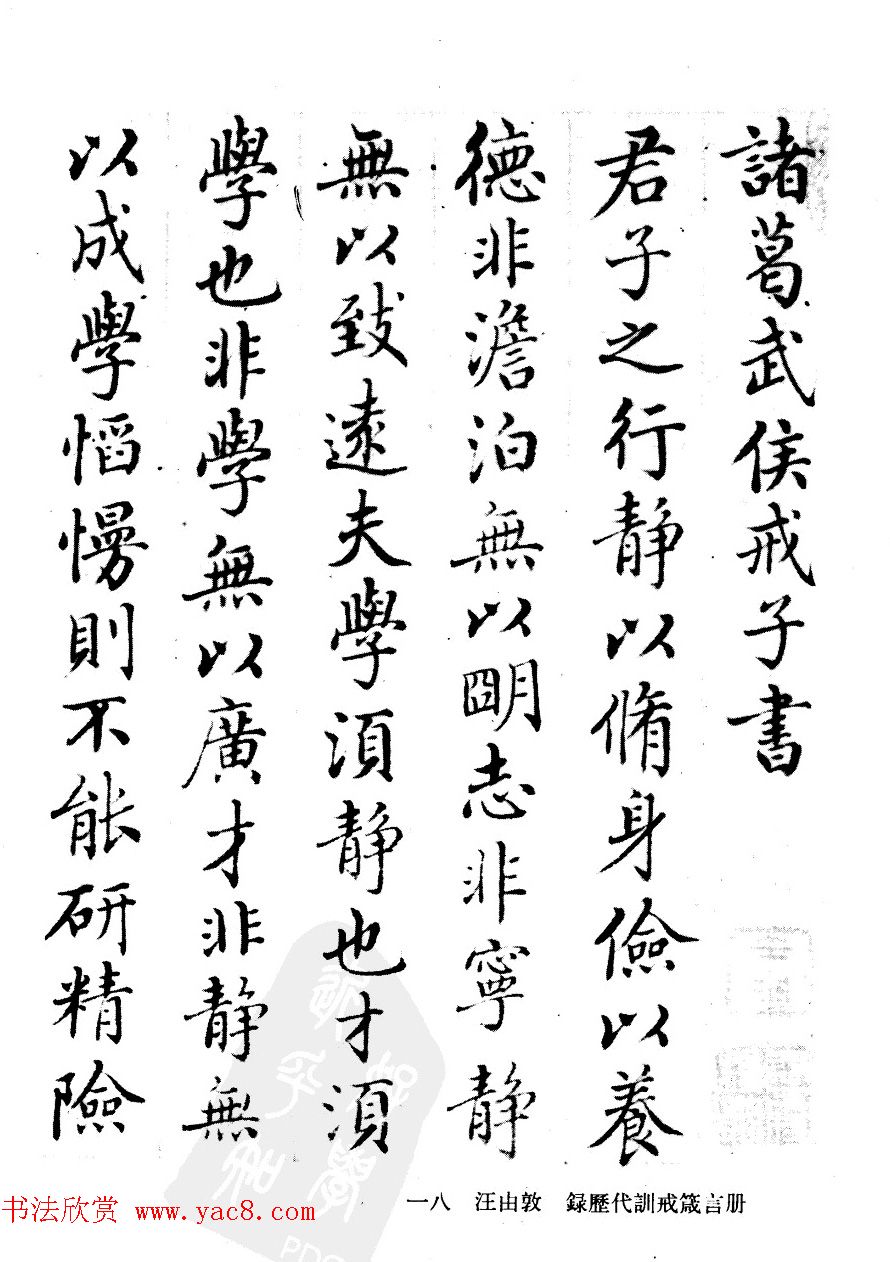 諸葛武侯戒子書
君子之行靜以脩身儉以養
德非澹泊無以明志非寧靜
無以致遠夫學須靜也才須
學也非學無以廣才非靜無
以成學慆慢則不能研精險
一八 汪由敦 録歷代訓戒箴言册
书法欣赏 www.yac8.com